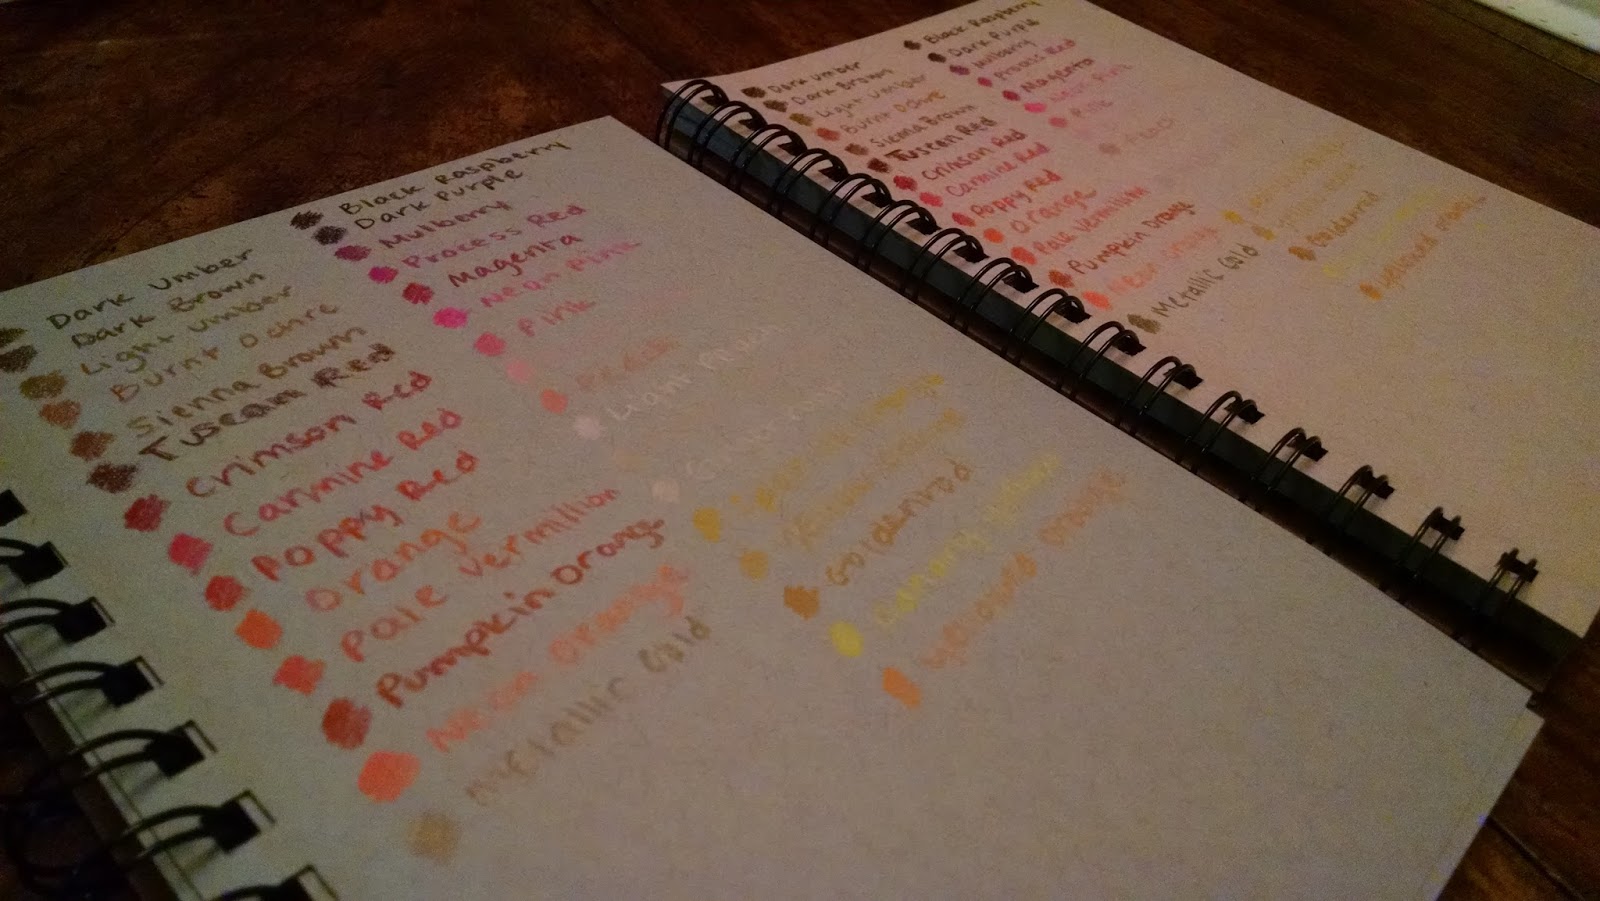 Dark Umber
Dark Brown
Light Umber
Burnt Ochre
Sienna Brown
Tuscan Red
Crimson Red
Carmine Red
Poppy Red
Orange
Pale Vermillion
Pumpkin Orange
Neon Orange
Metallic Gold
Black Raspberry
Dark Purple
Mulberry
Process Red
Magenta
Neon Pink
Pink
Peach
Light Peach
Goldenrod
Canary Yellow
Yellowed Orange
Dark Umber
Dark Brown
Light Umber
Burnt Ochre
Sienna Brown
Tuscan Red
Crimson Red
Carmine Red
Poppy Red
Orange
Pale Vermillion
Pumpkin Orange
Neon Orange
Metallic Gold
Black Raspberry
Dark Purple
Mulberry
Process Red
Magenta
Neon Pink
Pink
Peach
Goldenrod
Yellowed Orange